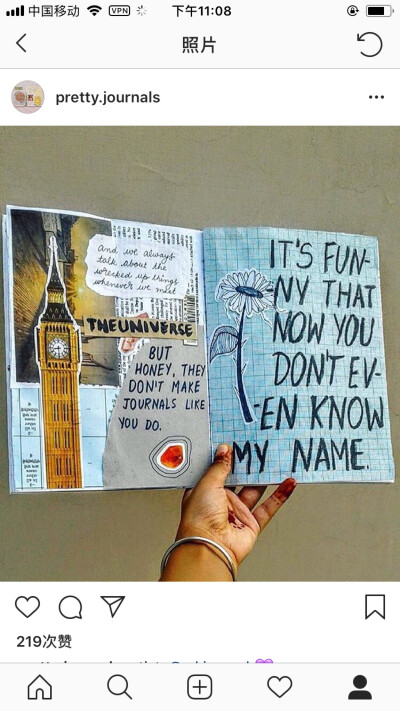 中国移动 VPN 下午11:08
照片
pretty.journals
And we always
talk about the
wrecked up things
whenever we meet
THE UNIVERSE
BUT
HONEY, THEY
DON'T MAKE
JOURNALS LIKE
YOU DO.
IT'S FUN-
NY THAT
NOW YOU
DON'T EV-
-EN KNOW
MY NAME.
219次赞